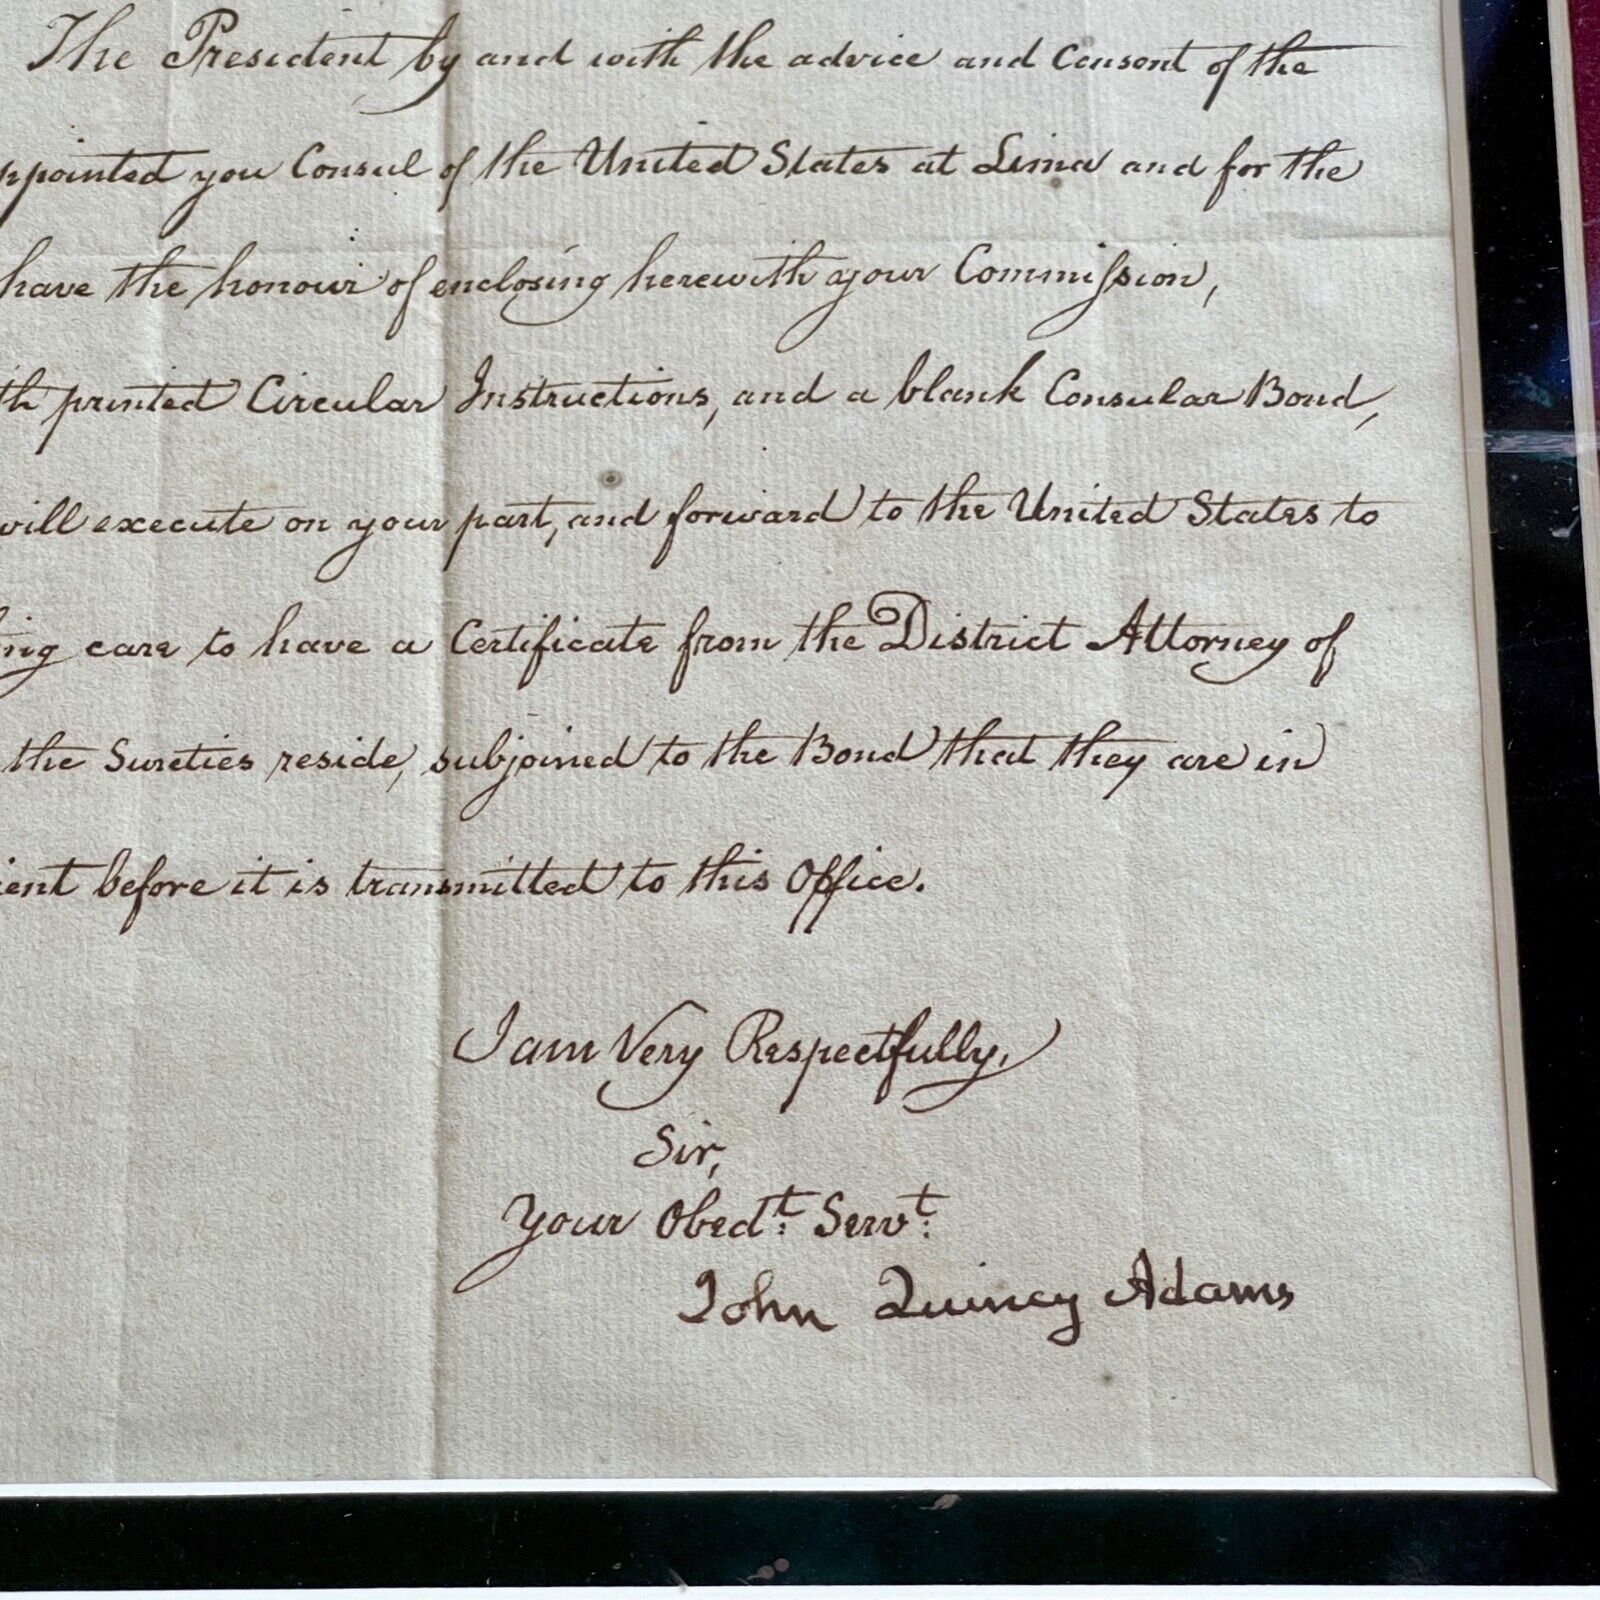 The President by and with the advice and Consent of the
ppointed you Consul of the United States at Lima and for the
have the honour of enclosing herewith your Commission,
th printed Circular Instructions, and a blank Consular Bond,
will execute on your part, and forward to the United States to
ing care to have a Certificate from the District Attorney of
the Sureties reside, subjoined to the Bond that they are in
ient before it is transmitted to this Office.
I am Very Respectfully,
Sir,
Your Obedt. Servt.
John Quincy Adams